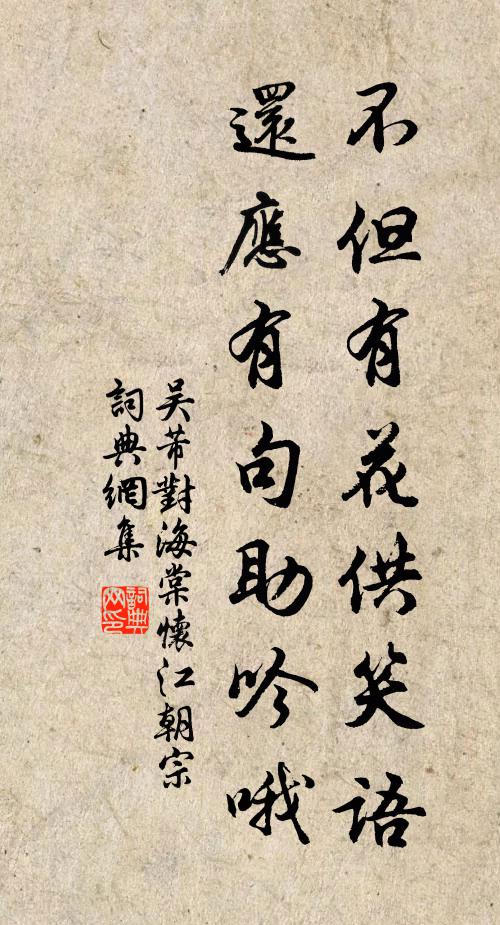 不但有花供笑語
還應有句助吟哦
吴芾對海棠懷江朝宗
詞典網集
詞典
网印